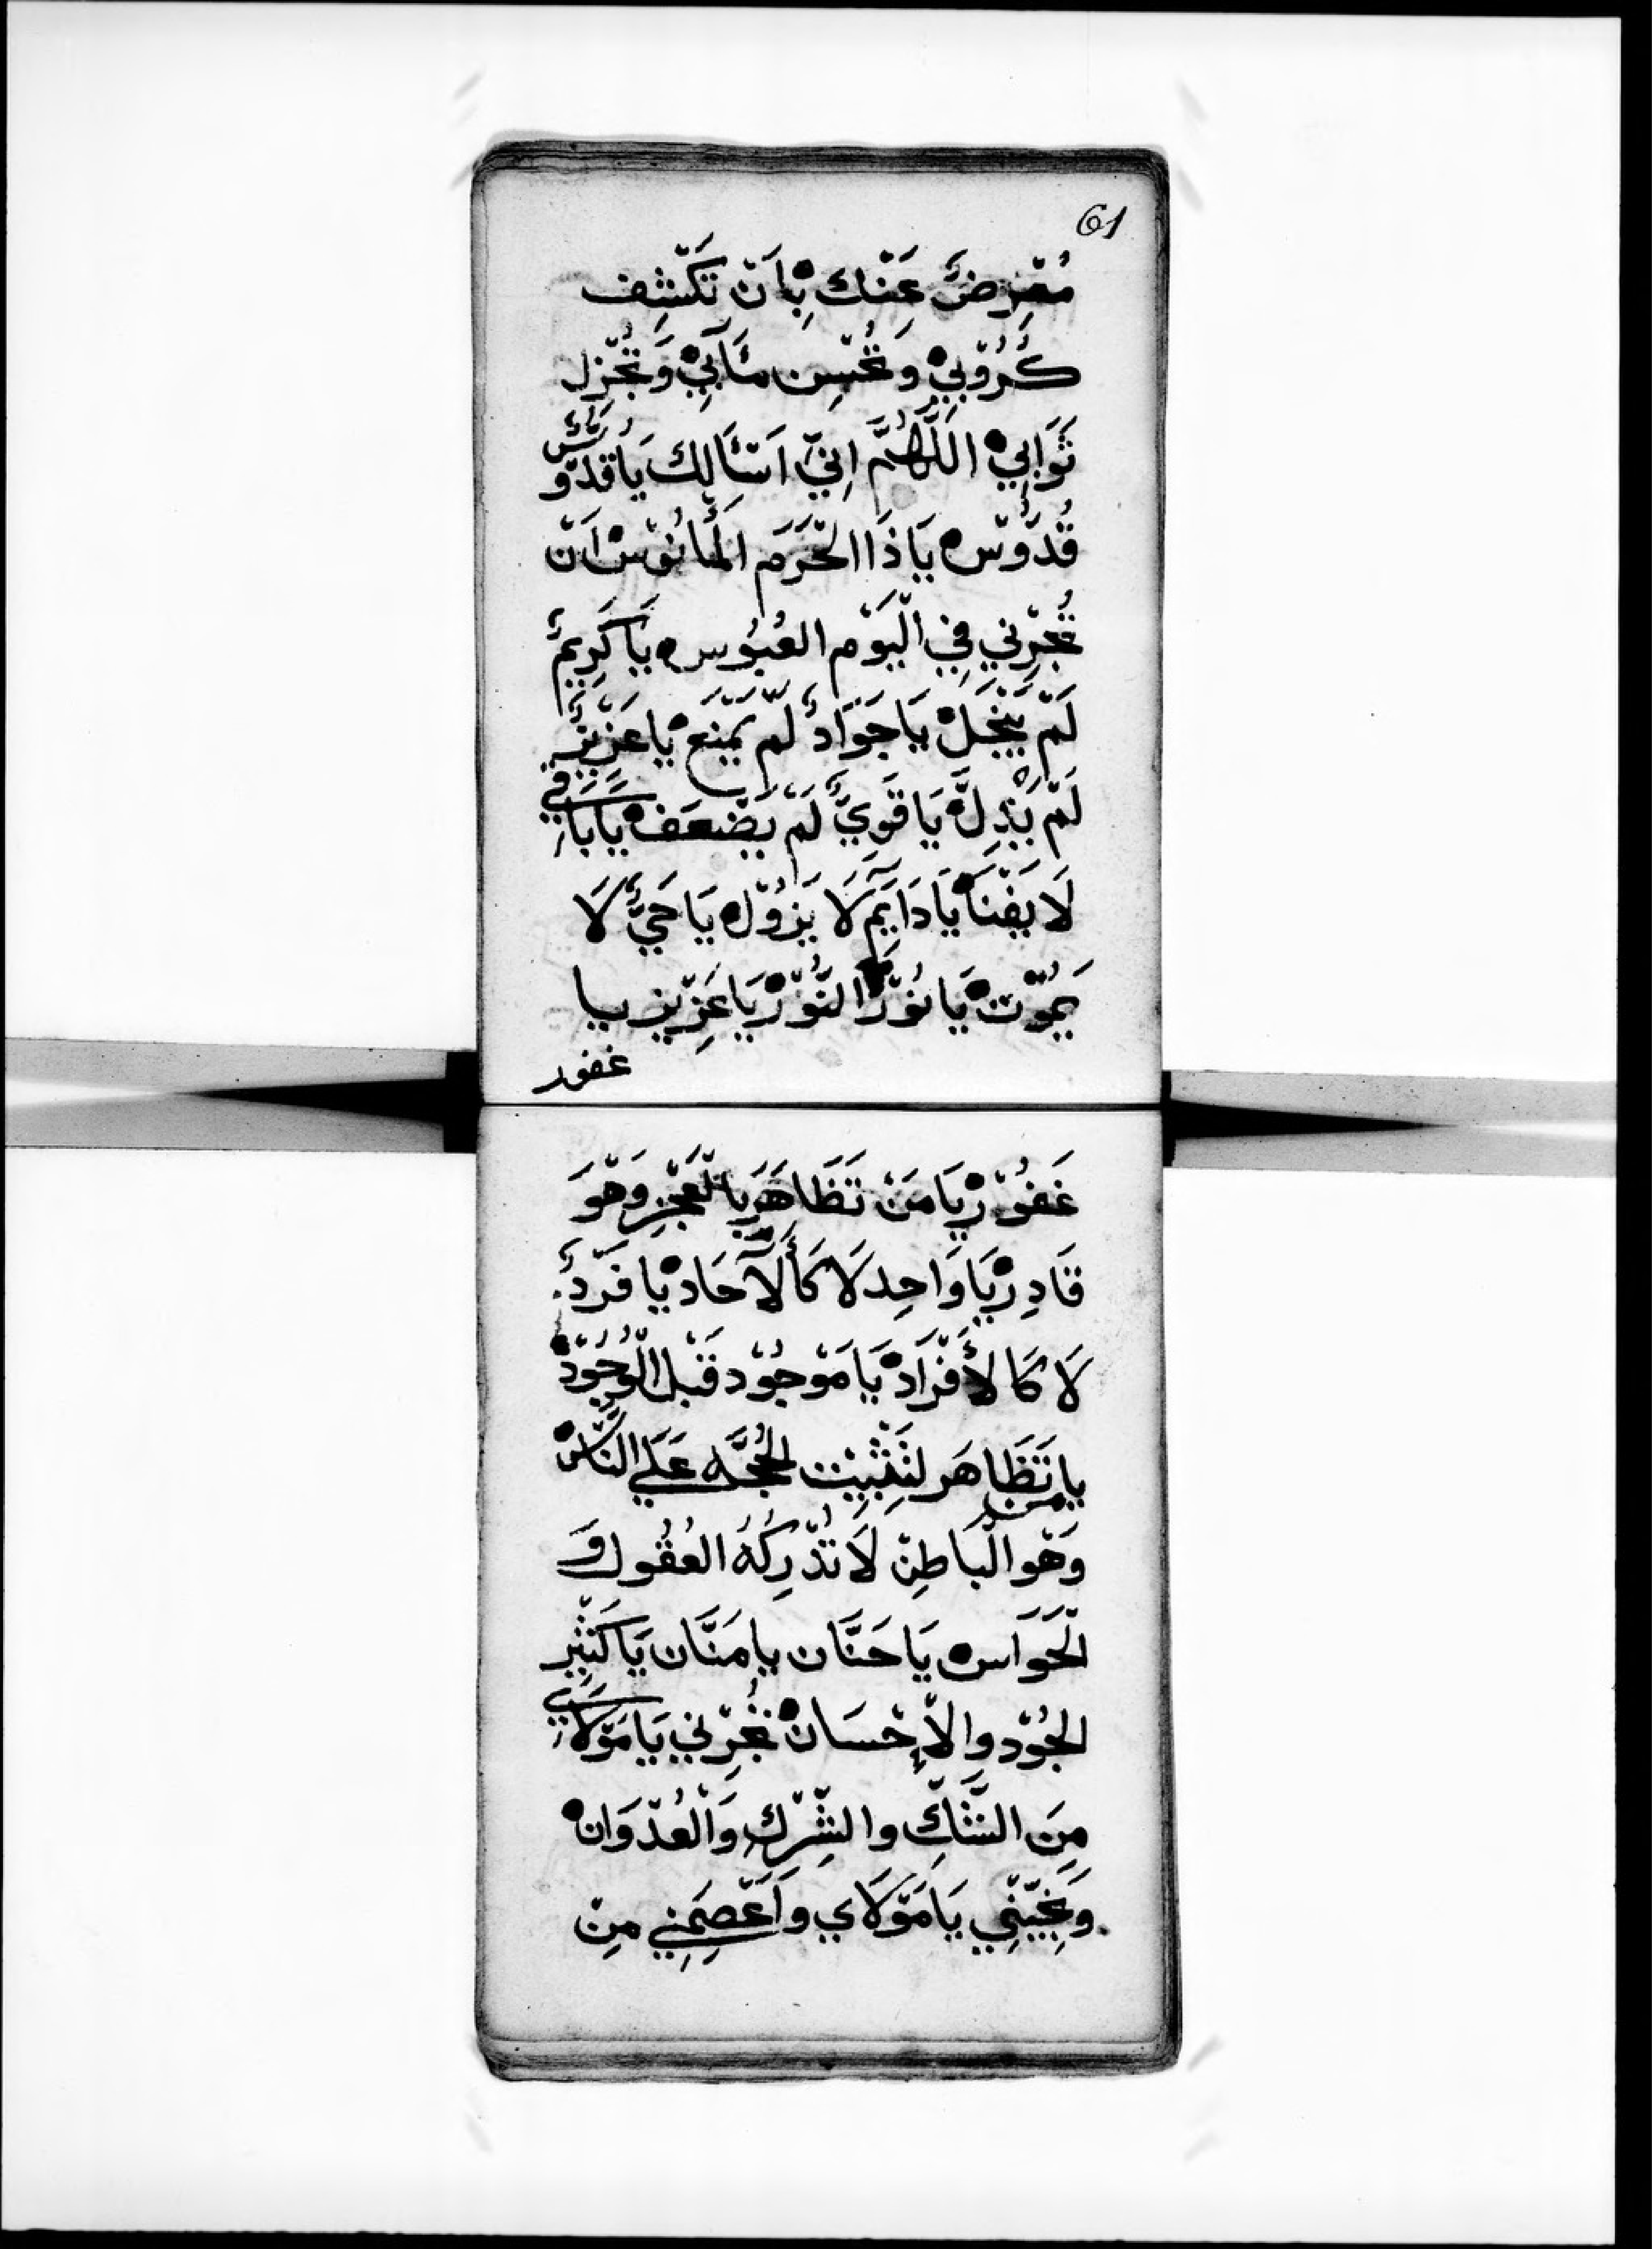 61
مُعْرِضٌ عَنْكَ بِاَنْ تَكْشِف
كُرُوْبِيْ وَتُحْسِن مَآبِيْ وَتُجْزِل
ثَوَابِيْ اللَّهُمَّ اِنِّي اَسْئَالك يَا قدُّوسُ
قُدُّوْس يَا ذَا الْحَرَم المَأنُوْس اَنْ
تُجِرْني فِي الْيَوْم العُبُوْس يَا كَرِيمٌ
لَمْ يَبْخَلْ يَا جَوَادٌ لَمْ يَمْنَعْ يا عَزِيْزٌ
لَمْ يَذِلَّ يَا قَوِيٌّ لَمْ يَضْعَف يَا بَاقِي
لَا يَفْنَا يَا دَايَم لَا يَزُوْل يَا حَيٌّ لَا
يَمُوْت يَا نُوْرَ النُّوْر يَا عَزِيْز يا
غفور
غَفُوْر يَا مَنْ تَظَاهَرَ بِالْعَجْزِ وَهْوَ
قَادِر يَا وَاحِد لَا كَالْآحَاد يا فَرْدٌ
لَا كَالأَفْرَاد يَا مَوْجُوْد قَبْلَ الْوُجُوْدْ
يا من تَظَاهَر لتَثْبِيْت الحُجَّه عَلَي النَّاس
وَهْوَ الْبَاطِنْ لَا تُدْرِكُهُ العُقُول وَ
الْحَوَاس يَا حَنَّان يا مَنَّان يَا كَثِيْر
الجُوْد والْإِحْسَان تُجِرْني يَا مَوْلَاي
مِنَ الشَّكِّ والشِّرْك وَالْعُدْوَان
وَنَجِّيْنِي يَا مَوْلَاي وَاَعْصِمَنِي مِنْ